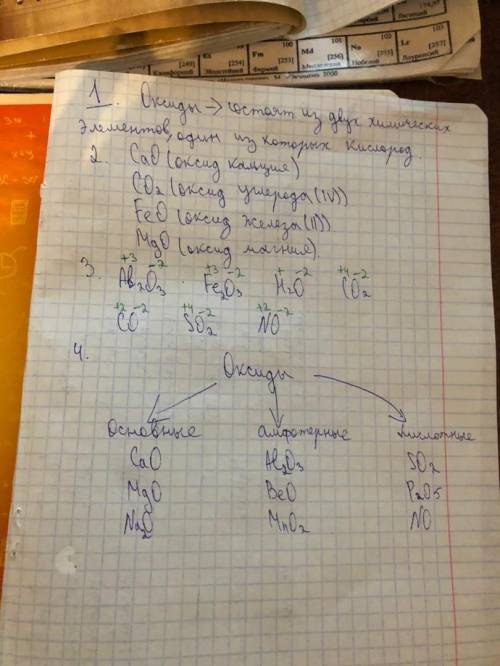 100
101
102
103
Es
Fm
Md
No
Lr
[254]
[253]
[256]
[255]
[257]
1. Оксиды → состоят из двух химических
элементов, один из которых кислород.
2. CaO (оксид кальция)
CO₂ (оксид углерода (IV))
FeO (оксид железа (II))
MgO (оксид магния).
+3 -2 +3 -2 + -2 +4 -2
3. Al₂O₃ Fe₂O₃ H₂O CO₂
+2 -2 +4 -2 +2 -2
CO SO₂ NO
4. Оксиды
основные амфотерные кислотные
CaO Al₂O₃ SO₂
MgO BeO P₂O5
Na₂O MnO₂ NO